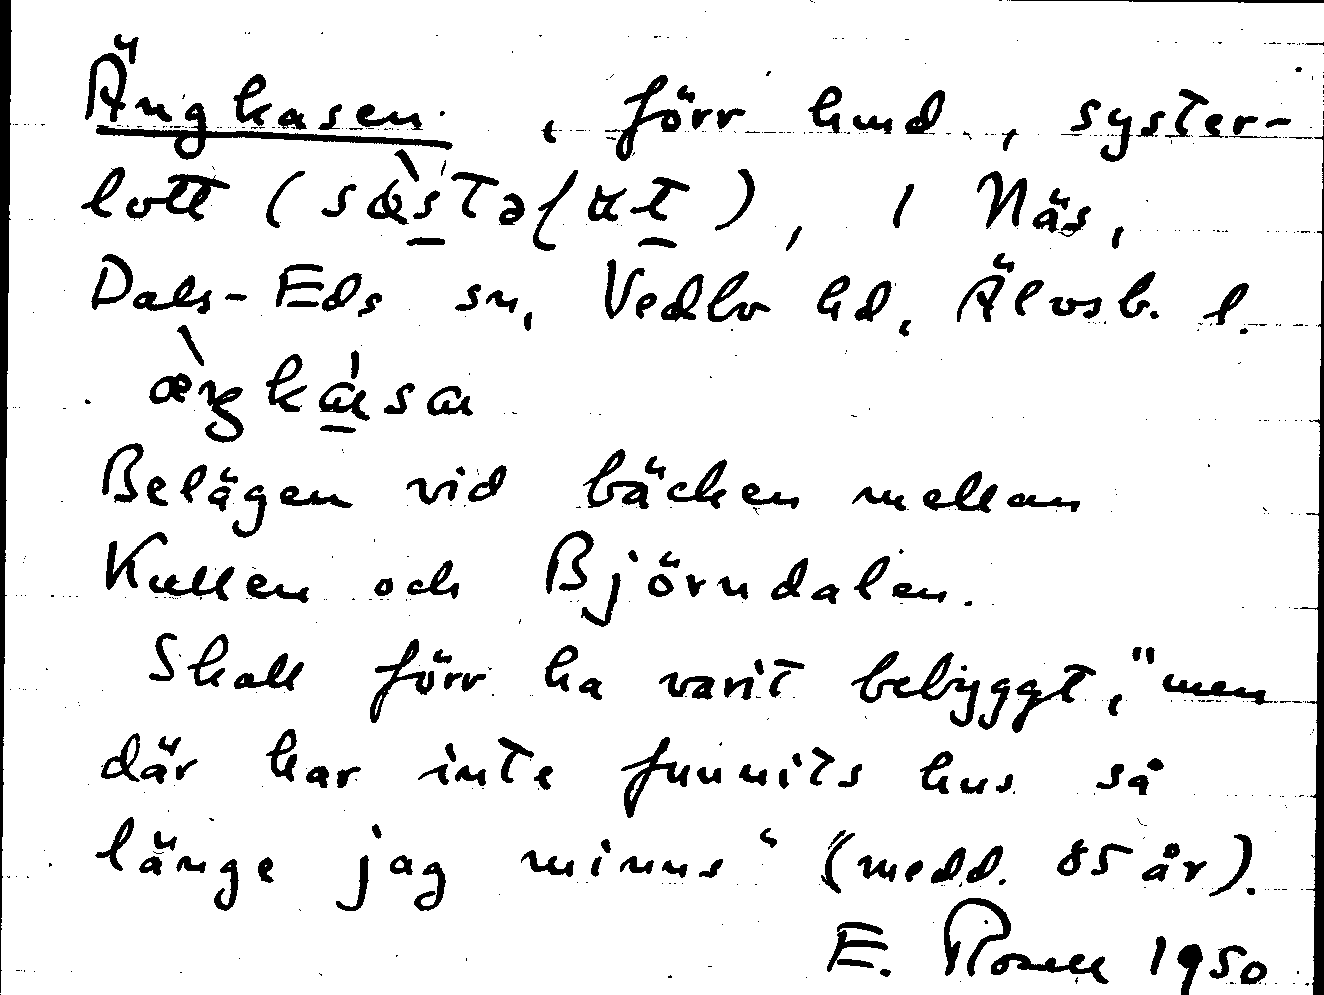 Ängkasen, förr hmd, syster-
lott ( ), i Näs,
Dals-Eds sn, Vedbo hd, Älvsb. l.
Belägen vid bäcken mellan
Kullen och Björndalen.
Skall förr ha varit bebyggt, "men
där har inte funnits hus så
länge jag minns" (medd. 85 år).
E. Rosell 1950